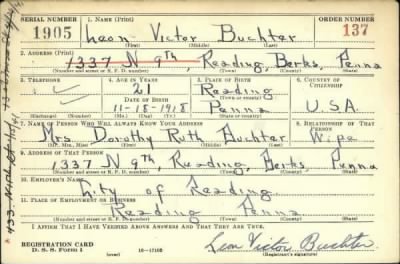 SERIAL NUMBER 1. NAME (Print) ORDER NUMBER
1905 Leon Victor Buchter 137
(First) (Middle) (Last)
2. ADDRESS (Print)
1337 N 9th, Reading, Berks, Penna
(Number and street or R. F. D. number) (Town) (County) (State)
3. TELEPHONE 4. AGE IN YEARS 5. PLACE OF BIRTH 6. COUNTRY OF CITIZENSHIP
21 Reading
DATE OF BIRTH (Town or county)
11-18-1918 Penna U.S.A
(Exchange) (No.) (Mo.) (Day) (Yr.) (State or country)
7. NAME OF PERSON WHO WILL ALWAYS KNOW YOUR ADDRESS 8. RELATIONSHIP OF THAT PERSON
Mrs. Dorothy Ruth Buchter Wife
(Mr., Mrs., Miss) (First) (Middle) (Last)
9. ADDRESS OF THAT PERSON
1337 N 9th, Reading, Berks, Penna
(Number and street or R. F. D. number) (Town) (County) (State)
10. EMPLOYER'S NAME
City of Reading
11. PLACE OF EMPLOYMENT OR BUSINESS
Reading Penna
(Number and street or R. F. D. number) (Town) (County) (State)
I AFFIRM THAT I HAVE VERIFIED ABOVE ANSWERS AND THAT THEY ARE TRUE.
REGISTRATION CARD
D. S. S. Form 1 16-17105 Leon Victor Buchter
(over) (Registrant's signature)